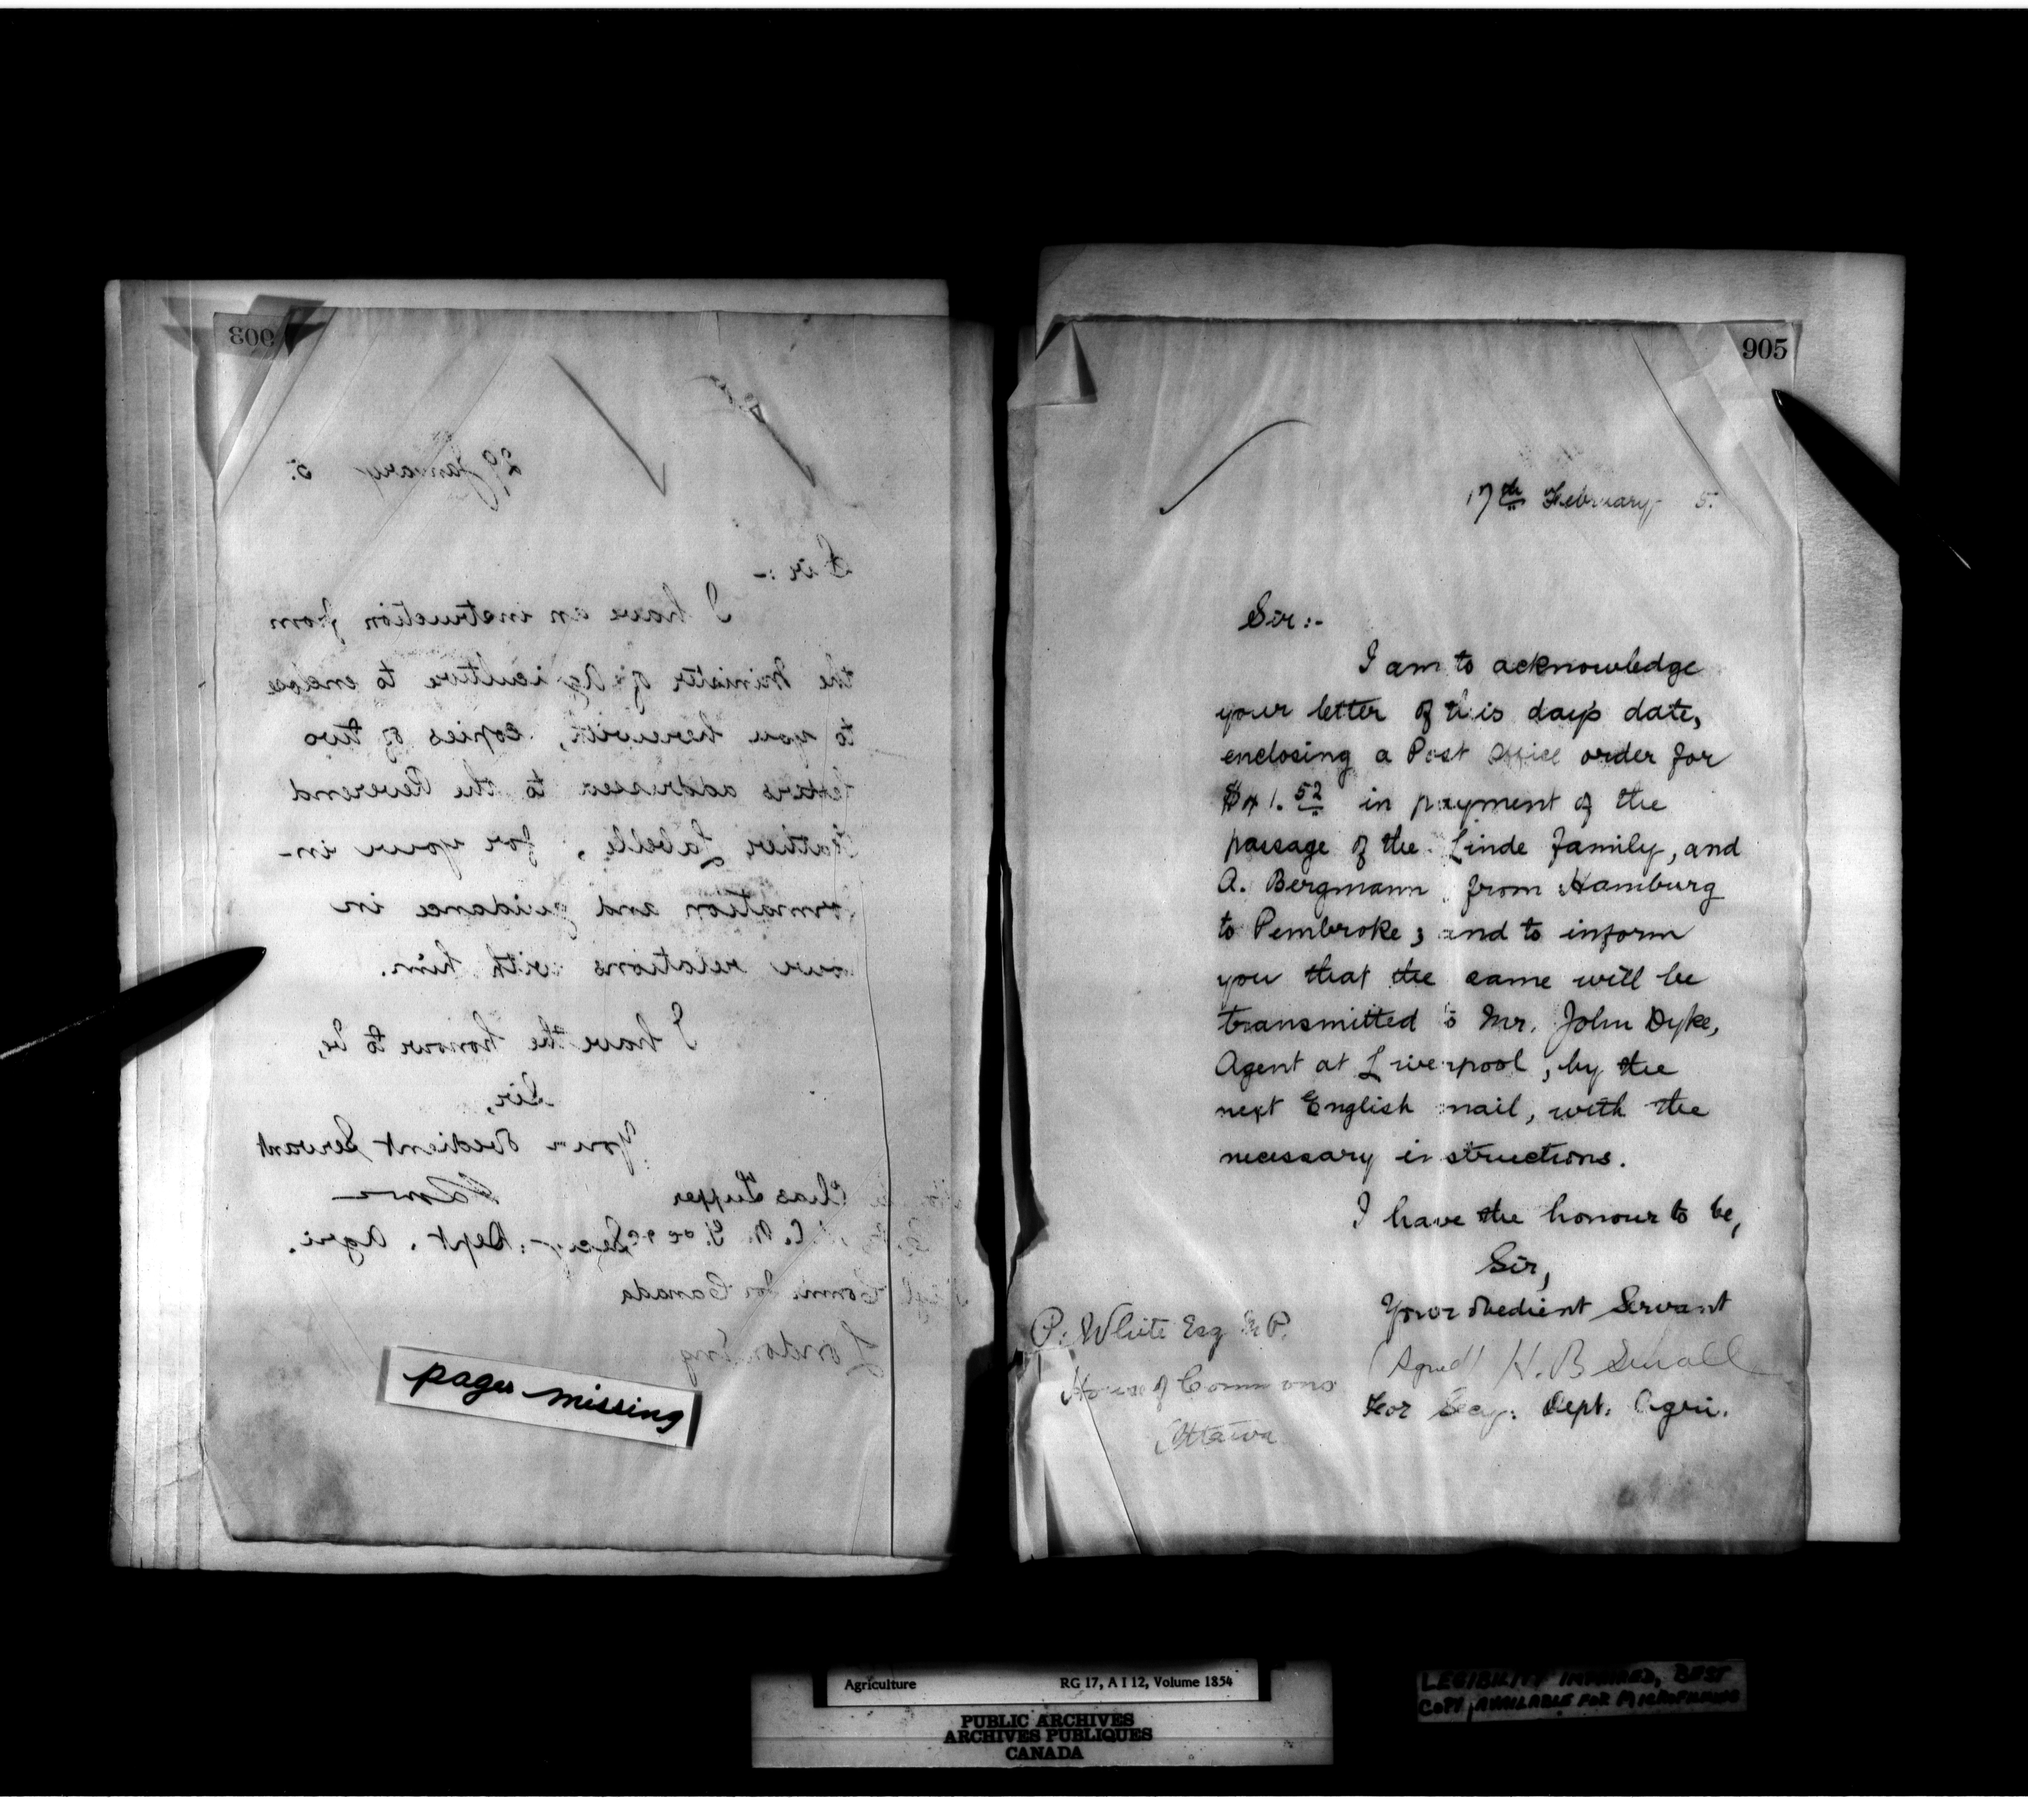 903
29 January 5.
Sir :-
I have an instruction from
the Minister of Agriculture to enclose
to you herewith, copies of two
letters addressed to the Reverend
Father Labelle, for your in-
formation and guidance in
our relations with him.
I have the honour to be,
Sir,
Your obedient Servant
Chas Tupper
Secy. Dept. Agri.
Comm. for Canada
London Eng
pages missing
905
17th February 5.
Sir :-
I am to acknowledge
your letter of this day's date,
enclosing a Post Office order for
$41.52 in payment of the
passage of the Linde family, and
A. Bergmann, from Hamburg
to Pembroke; and to inform
you that the same will be
transmitted to Mr. John Dyke,
Agent at Liverpool, by the
next English mail, with the
necessary instructions.
I have the honour to be,
Sir,
Your obedient Servant
(Signed) H. B Small
For Secy: Dept. Agri.
P. White Esq M.P.
House of Commons
Ottawa
Agriculture RG 17, A I 12, Volume 1854
PUBLIC ARCHIVES
ARCHIVES PUBLIQUES
CANADA
LEGIBILITY IMPAIRED, BEST
COPY AVAILABLE FOR MICROFILMING